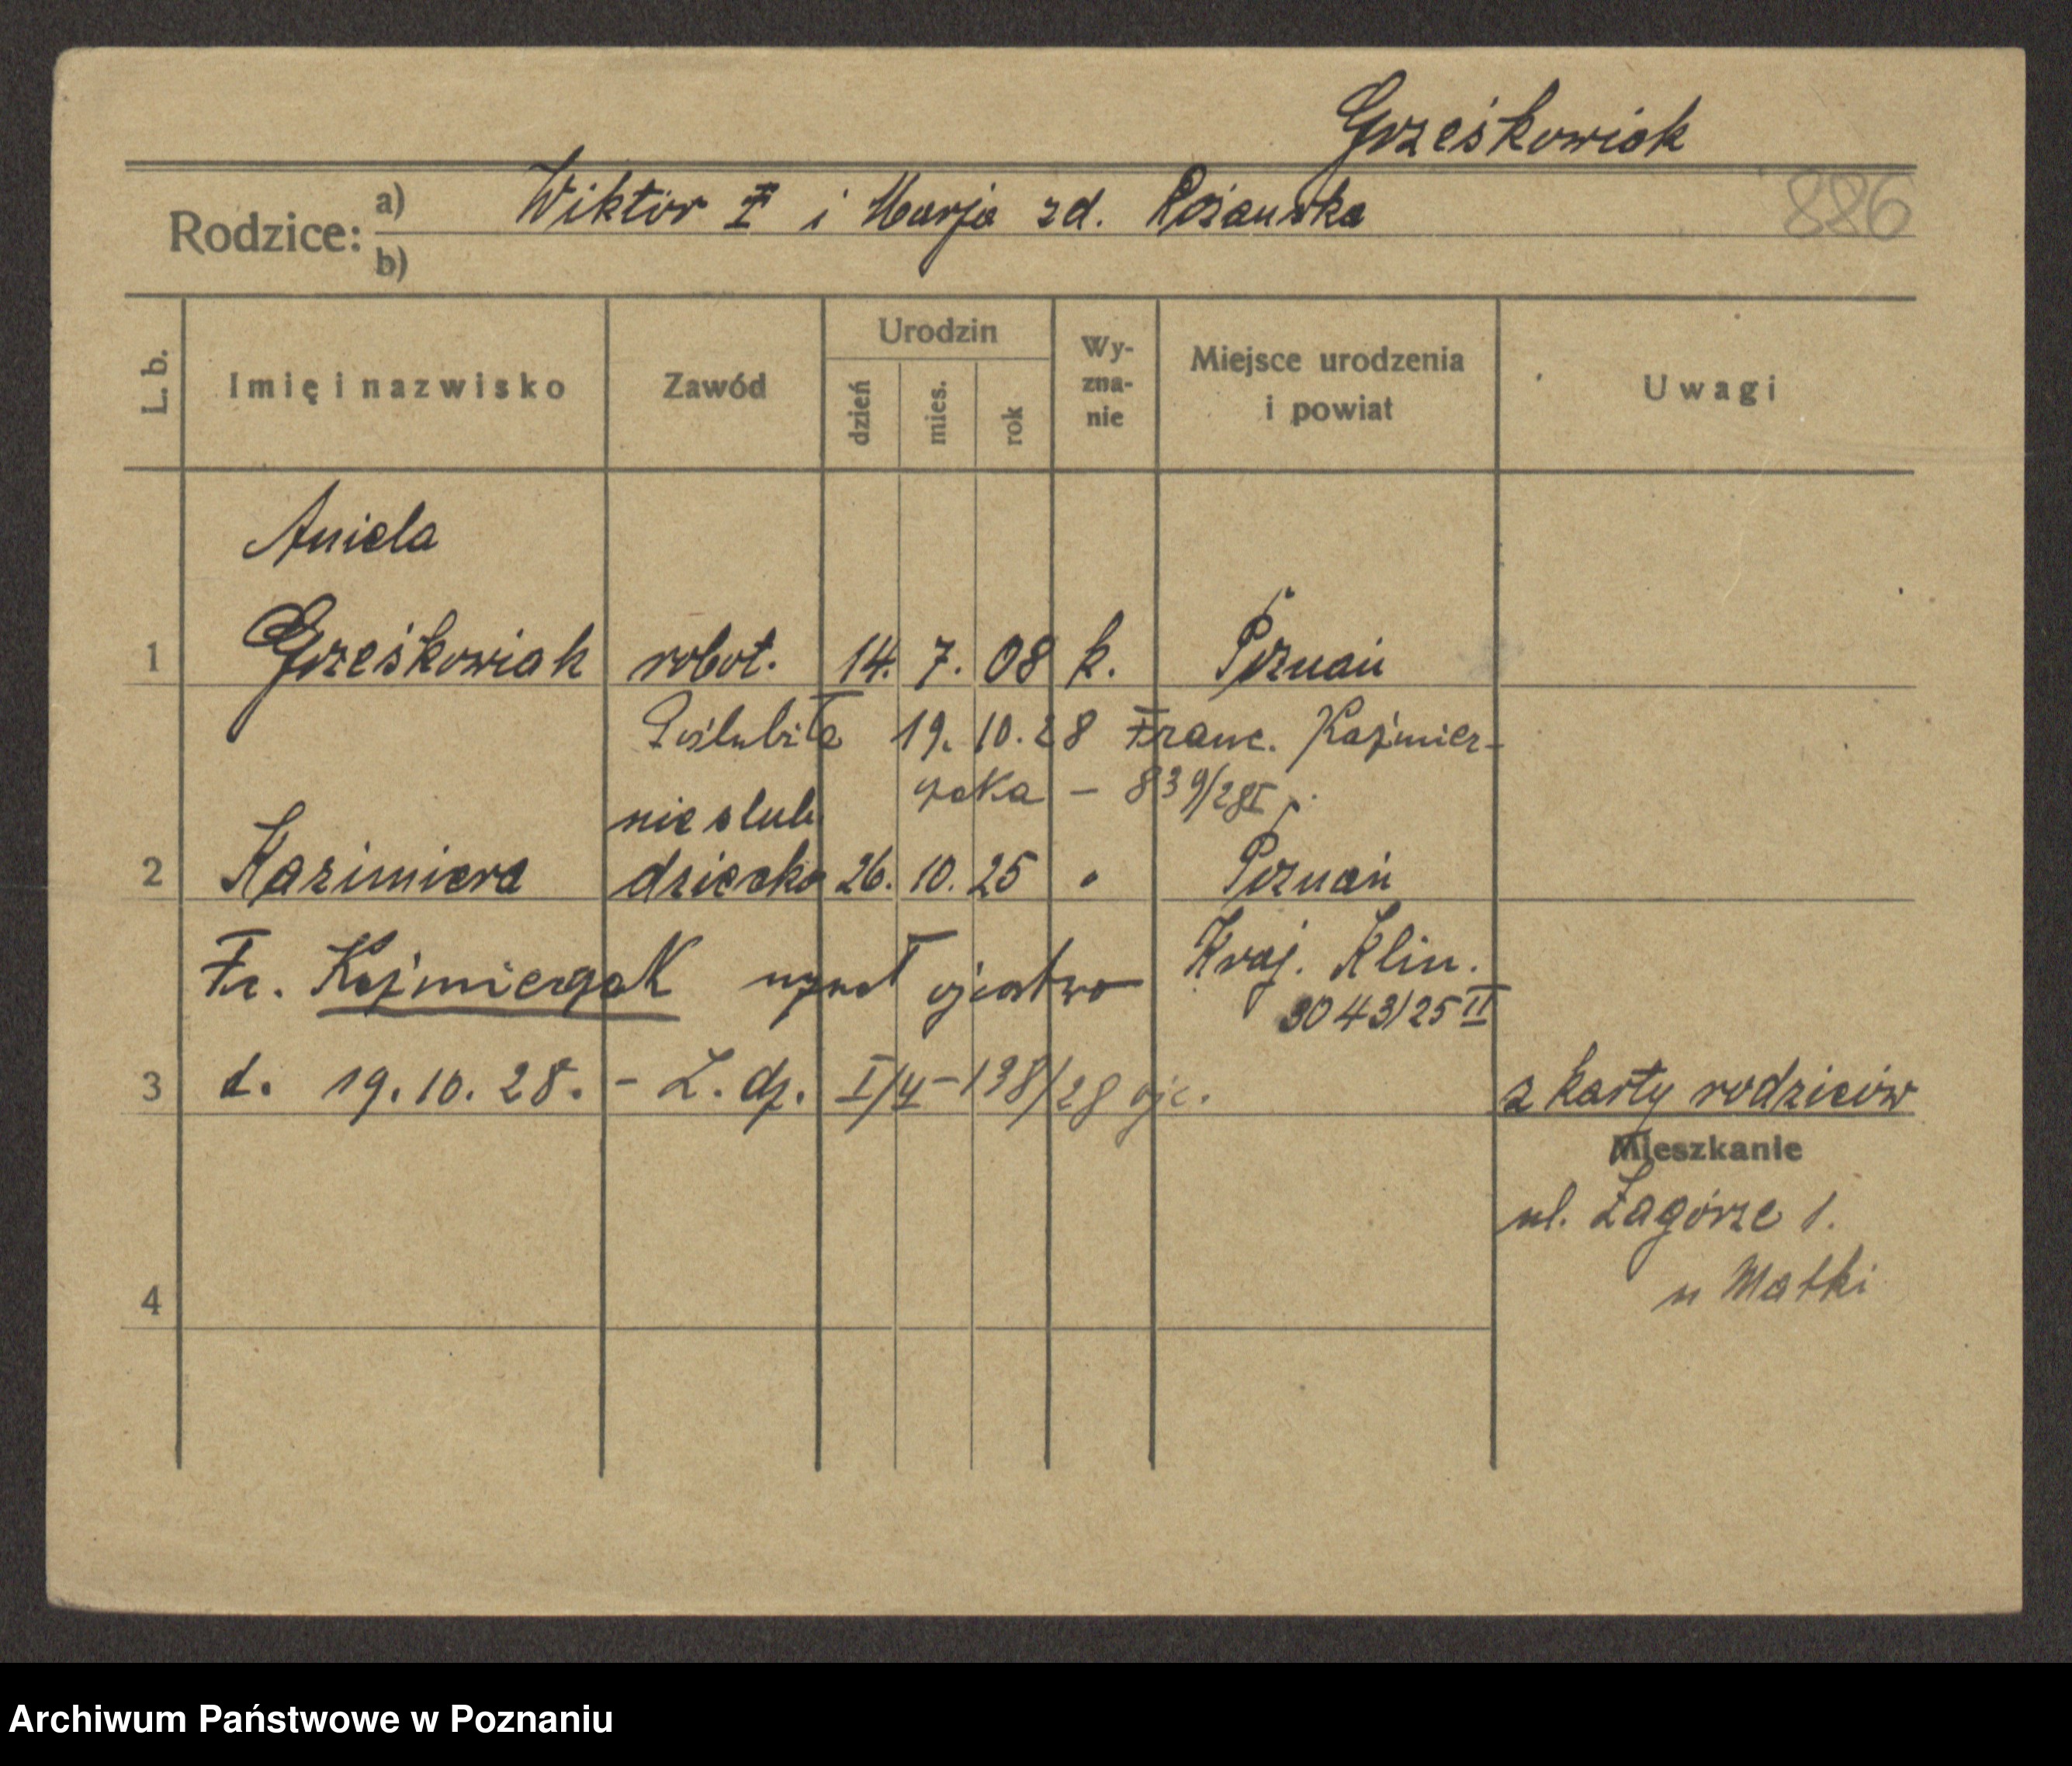 Grześkowiak
886
Rodzice: a) Wiktor † i Marja zd. Różańska
b)
L. b. Imię i nazwisko Zawód Urodzin dzień mies. rok Wyznanie Miejsce urodzenia i powiat Uwagi
Aniela
1 Grześkowiak robot. 14. 7. 08 k. Poznań
Poślubiła 19. 10. 28 Franc. Kaźmier-
czaka – 839/28I
nieślub
2 Kazimiera dziecko 26. 10. 25 " Poznań
Fr. Kaźmierczak uznał ojcostwo Kraj. Klin.
3043/25 II
3 d. 19. 10. 28. – Z. dz. 138/28 ojc. z karty rodziców
Mieszkanie
ul. Zagórze 1.
u Matki
4
Archiwum Państwowe w Poznaniu